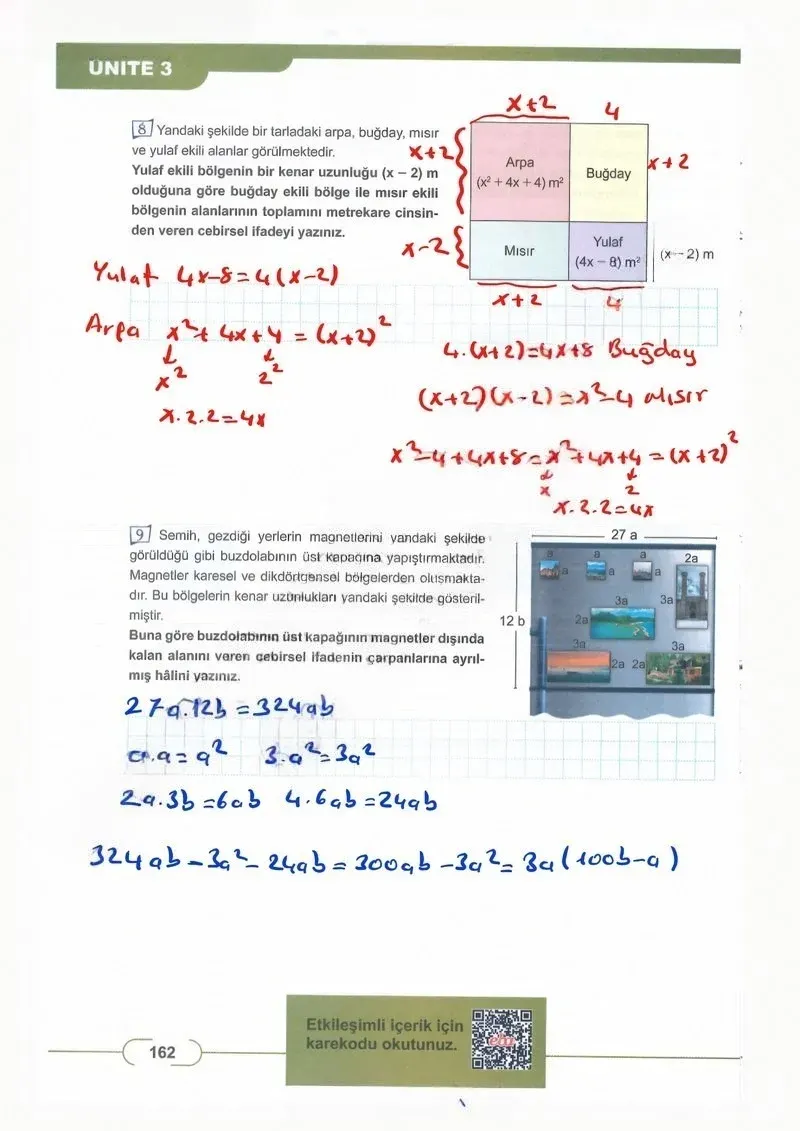 ÜNİTE 3
8 Yandaki şekilde bir tarladaki arpa, buğday, mısır
ve yulaf ekili alanlar görülmektedir.
Yulaf ekili bölgenin bir kenar uzunluğu (x – 2) m
olduğuna göre buğday ekili bölge ile mısır ekili
bölgenin alanlarının toplamını metrekare cinsin-
den veren cebirsel ifadeyi yazınız.
x+2 4
x+2
Arpa
(x² + 4x + 4) m²
Buğday
x+2
x-2
Mısır
Yulaf
(4x – 8) m²
(x – 2) m
x+2 4
Yulaf 4x-8=4(x-2)
Arpa x²+4x+4=(x+2)²
x² 2²
x.2.2=4x
4.(x+2)=4x+8 Buğday
(x+2)(x-2)=x²-4 Mısır
x²-4+4x+8=x²+4x+4=(x+2)²
x 2
x.2.2=4x
9 Semih, gezdiği yerlerin magnetlerini yandaki şekilde
görüldüğü gibi buzdolabının üst kapağına yapıştırmaktadır.
Magnetler karesel ve dikdörtgensel bölgelerden oluşmakta-
dır. Bu bölgelerin kenar uzunlukları yandaki şekilde gösteril-
miştir.
Buna göre buzdolabının üst kapağının magnetler dışında
kalan alanını veren cebirsel ifadenin çarpanlarına ayrıl-
mış hâlini yazınız.
27 a
12 b
a a a 2a
a a a
3a 3a
2a
3a 3a
2a 2a
27a.12b=324ab
a.a=a² 3.a²=3a²
2a.3b=6ab 4.6ab=24ab
324ab-3a²-24ab=300ab-3a²=3a(100b-a)
Etkileşimli içerik için
karekodu okutunuz.
eba
162